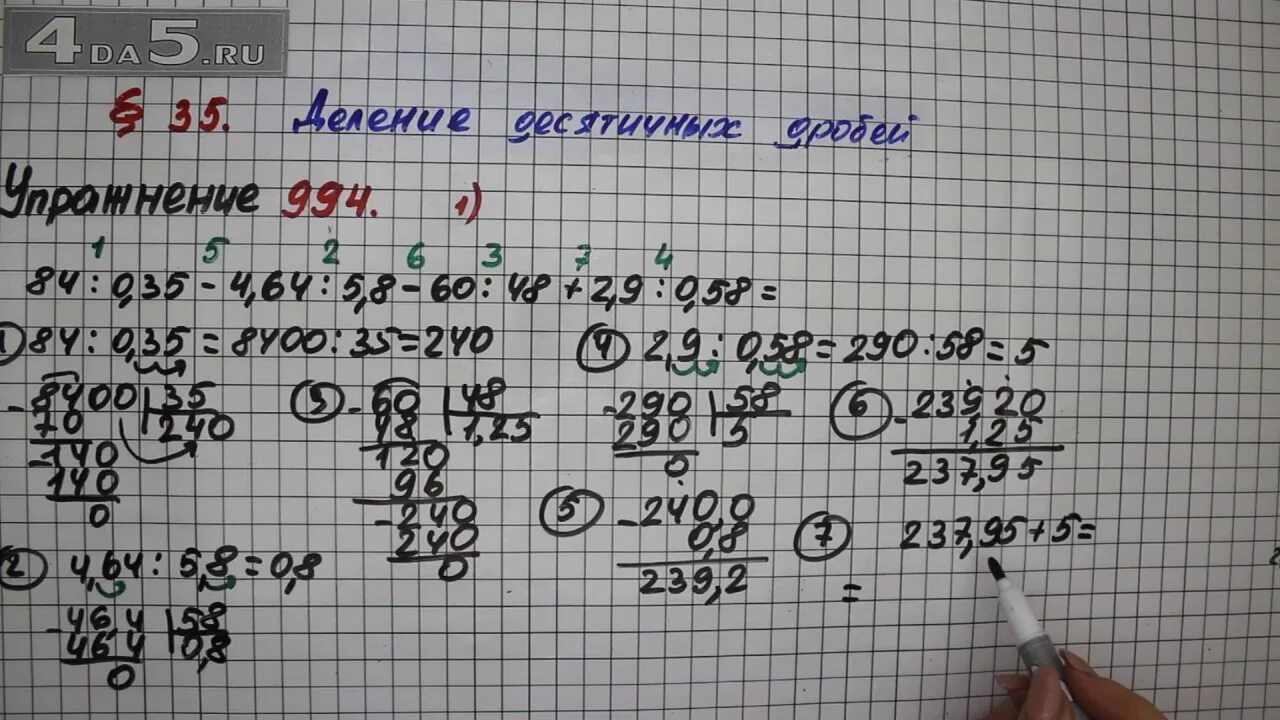 4DA5.RU
§ 35. Деление десятичных дробей
Упражнение 994. 1)
1 5 2 6 3 7 4
84 : 0,35 - 4,64 : 5,8 - 60 : 48 + 2,9 : 0,58 =
1) 84 : 0,35 = 8400 : 35 = 240
- 8400 | 35
70 240
- 140
140
0
2) 4,64 : 5,8 = 0,8
- 46,4 | 58
46 4 0,8
0
3) - 60 | 48
48 1,25
120
96
- 240
240
0
4) 2,9 : 0,58 = 290 : 58 = 5
- 290 | 58
290 5
0
5) - 240,0
0,8
239,2
6) - 239,20
1,25
237,95
7) 237,95 + 5 =
=